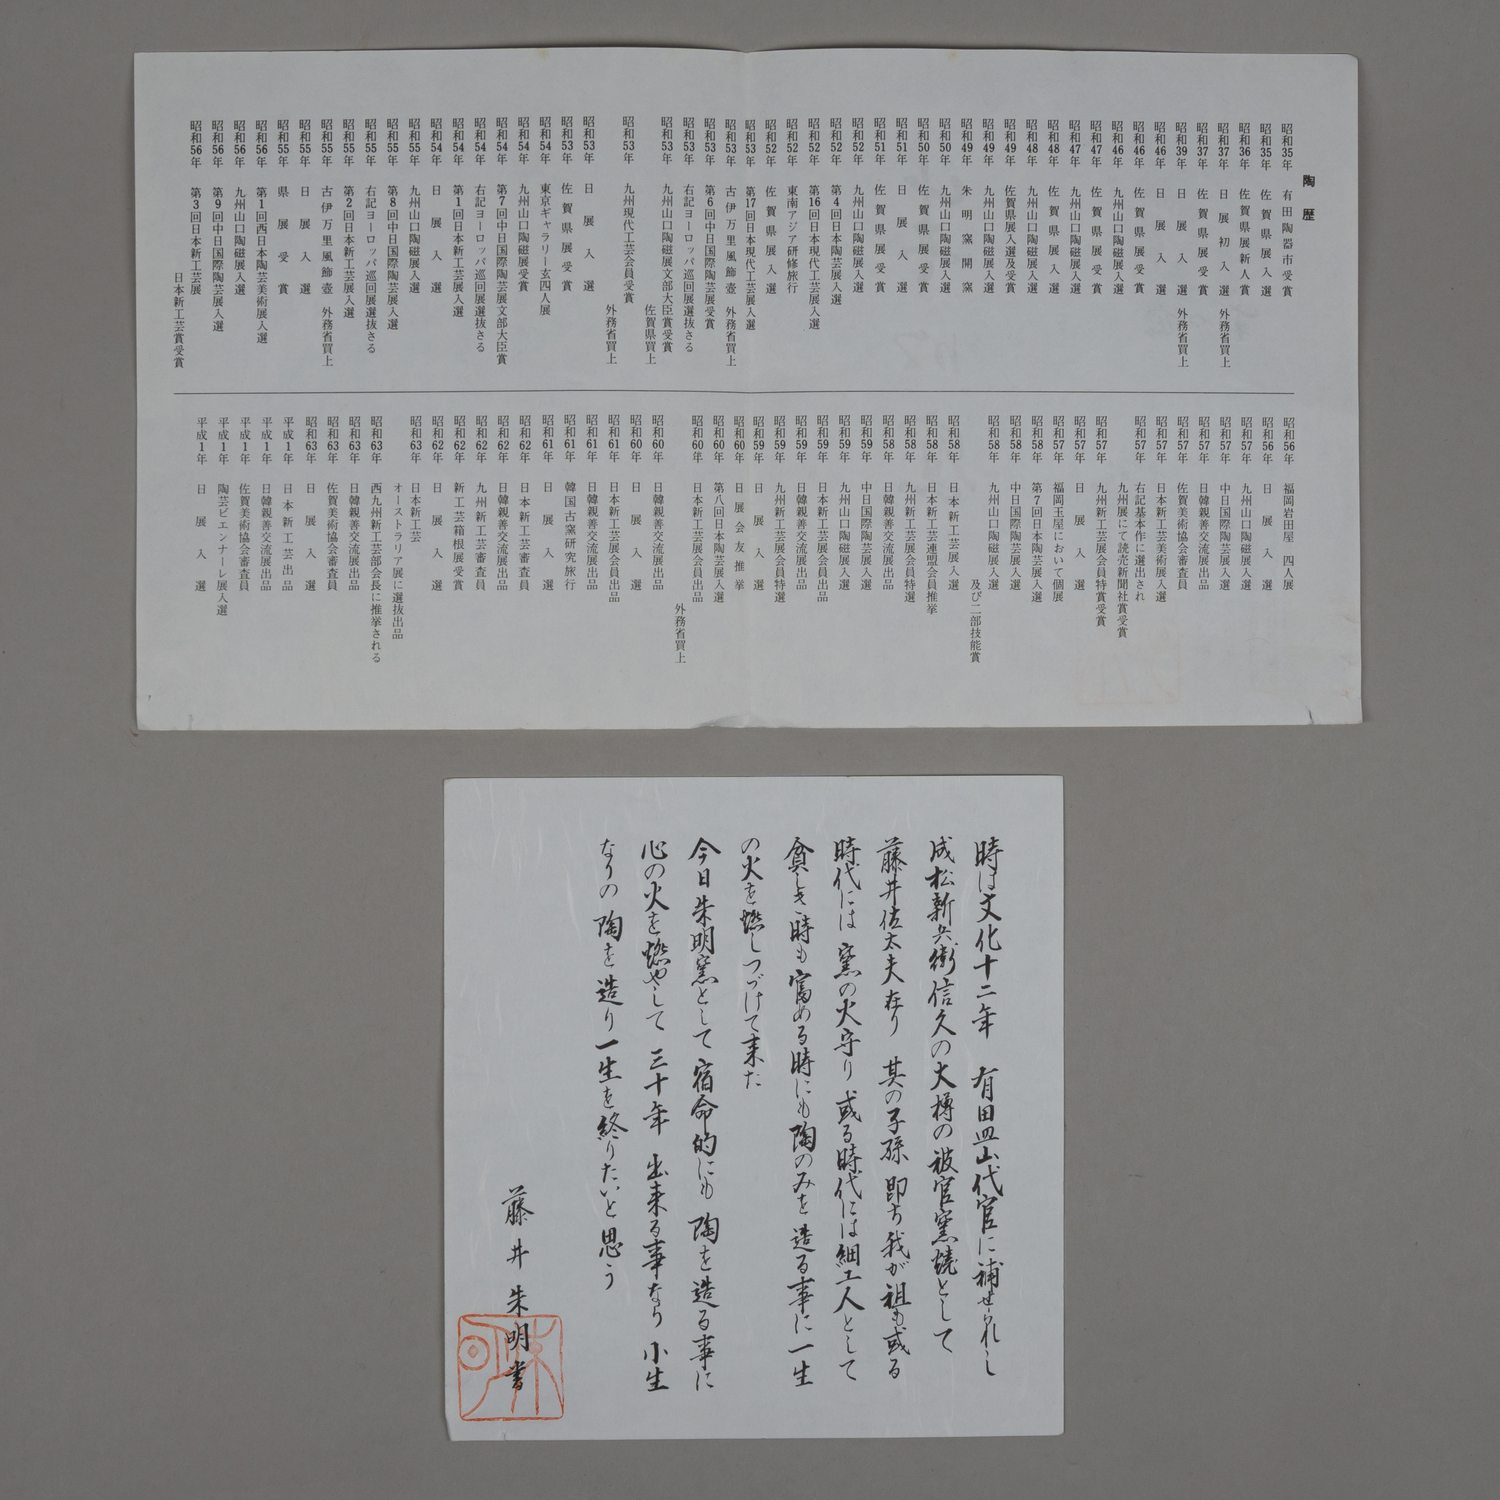 陶歴
昭和35年 有田陶器市受賞
昭和35年 佐賀県展入選
昭和36年 佐賀県展新人賞
昭和37年 日展初入選 外務省買上
昭和37年 佐賀県展受賞
昭和39年 日展入選 外務省買上
昭和46年 日展入選
昭和46年 佐賀県展受賞
昭和46年 九州山口陶磁展入選
昭和47年 佐賀県展受賞
昭和47年 九州山口陶磁展入選
昭和48年 佐賀県展入選
昭和48年 九州山口陶磁展入選
昭和49年 佐賀県展入選及受賞
昭和49年 九州山口陶磁展入選
昭和49年 朱明窯開窯
昭和50年 九州山口陶磁展入選
昭和50年 佐賀県展受賞
昭和51年 日展入選
昭和51年 佐賀県展受賞
昭和52年 九州山口陶磁展入選
昭和52年 第4回日本陶芸展入選
昭和52年 第16回日本現代工芸展入選
昭和52年 東南アジア研修旅行
昭和52年 佐賀県展入選
昭和53年 第17回日本現代工芸展入選
昭和53年 古伊万里風飾壺 外務省買上
昭和53年 第6回中日国際陶芸展受賞
昭和53年 右記ヨーロッパ巡回展選抜さる
昭和53年 九州山口陶磁展文部大臣賞受賞
佐賀県買上
昭和53年 九州現代工芸会員受賞
外務省買上
昭和53年 日展入選
昭和53年 佐賀県展受賞
昭和54年 東京ギャラリー玄四人展
昭和54年 九州山口陶磁展受賞
昭和54年 第7回中日国際陶芸展文部大臣賞
昭和54年 右記ヨーロッパ巡回展選抜さる
昭和54年 第1回日本新工芸展入選
昭和54年 日展入選
昭和55年 九州山口陶磁展入選
昭和55年 第8回中日国際陶芸展入選
昭和55年 右記ヨーロッパ巡回展選抜さる
昭和55年 第2回日本新工芸展入選
昭和55年 古伊万里風飾壺 外務省買上
昭和55年 日展入選
昭和55年 県展受賞
昭和56年 第1回西日本陶芸美術展入選
昭和56年 九州山口陶磁展入選
昭和56年 第9回中日国際陶芸展入選
昭和56年 第3回日本新工芸展
日本新工芸賞受賞
昭和56年 福岡岩田屋 四人展
昭和56年 日展入選
昭和57年 九州山口陶磁展入選
昭和57年 中日国際陶芸展入選
昭和57年 日韓親善交流展出品
昭和57年 佐賀美術協会審査員
昭和57年 日本新工芸美術展入選
昭和57年 右記基本作に選出され
九州展にて読売新聞社賞受賞
昭和57年 九州新工芸展会員特賞受賞
昭和57年 日展入選
昭和57年 福岡玉屋において個展
昭和58年 第7回日本陶芸展入選
昭和58年 中日国際陶芸展入選
昭和58年 九州山口陶磁展入選
及び二部技能賞
昭和58年 日本新工芸展入選
昭和58年 日本新工芸連盟会員推挙
昭和58年 九州新工芸展会員特選
昭和58年 中日国際陶芸展入選
昭和59年 九州山口陶磁展入選
昭和59年 日本新工芸展会員出品
昭和59年 日韓親善交流展出品
昭和59年 九州新工芸展会員特選
昭和59年 日展入選
昭和60年 日展会友推挙
昭和60年 第八回日本陶芸展入選
昭和60年 日本新工芸展会員出品
外務省買上
昭和60年 日韓親善交流展出品
昭和60年 日展入選
昭和61年 日本新工芸展会員出品
昭和61年 日韓親善交流展出品
昭和61年 韓国古窯研究旅行
昭和61年 日展入選
昭和62年 日本新工芸審査員
昭和62年 日韓親善交流展出品
昭和62年 九州新工芸審査員
昭和62年 新工芸箱根展受賞
昭和62年 日展入選
昭和63年 日本新工芸
オーストラリア展に選抜出品
昭和63年 西九州新工芸部会長に推挙される
昭和63年 日韓親善交流展出品
昭和63年 佐賀美術協会審査員
昭和63年 日展入選
平成1年 日本新工芸出品
平成1年 日韓親善交流展出品
平成1年 佐賀美術協会審査員
平成1年 陶芸ビエンナーレ展入選
平成1年 日展入選
時は文化十二年 有田皿山代官に補せられし
成松新兵衛信久の大樽の被官窯焼として
藤井佐太夫在り 其の子孫即ち我が祖も或る
時代には窯の火守り或る時代には細工人として
貧しき時も富める時にも陶のみを造る事に一生
の火を燃しつづけて来た
今日朱明窯として宿命的にも陶を造る事に
心の火を燃やして 三十年 出来る事なら 小生
なりの陶を造り一生を終りたいと思う
藤井朱明書
朱明